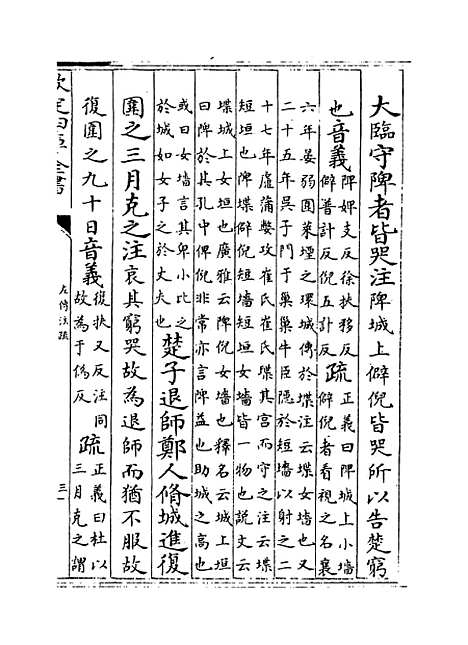 大臨守陴者皆哭注陴城上僻倪皆哭所以告楚窮
也音義陴婢支反徐扶移反
僻普計反倪五計反
疏正義曰陴城上小墻
僻倪者看視之名襄
六年晏弱圍萊堙之環城傅於堞注云堞女墻也又
二十五年吳子門于巢巢牛臣隠於短墻以射之二
十七年盧蒲嫳攻崔氏崔氏堞其宮而守之注云堞
短垣也陴堞俾倪短墻短垣女墻皆一物也説文云
堞城上女垣也廣雅云陴倪女墻也釋名云城上垣
曰陴於其孔中俾倪非常亦言陴益也助城之高也
或曰女墻言其卑小比之
於城如女子之於丈夫也
楚子退師鄭人脩城進復
圍之三月克之注哀其窮哭故為退師而猶不服故
復圍之九十日音義復扶又反注同
故為于偽反
疏正義曰杜以
三月克之謂
欽定四庫全書
左傳注疏